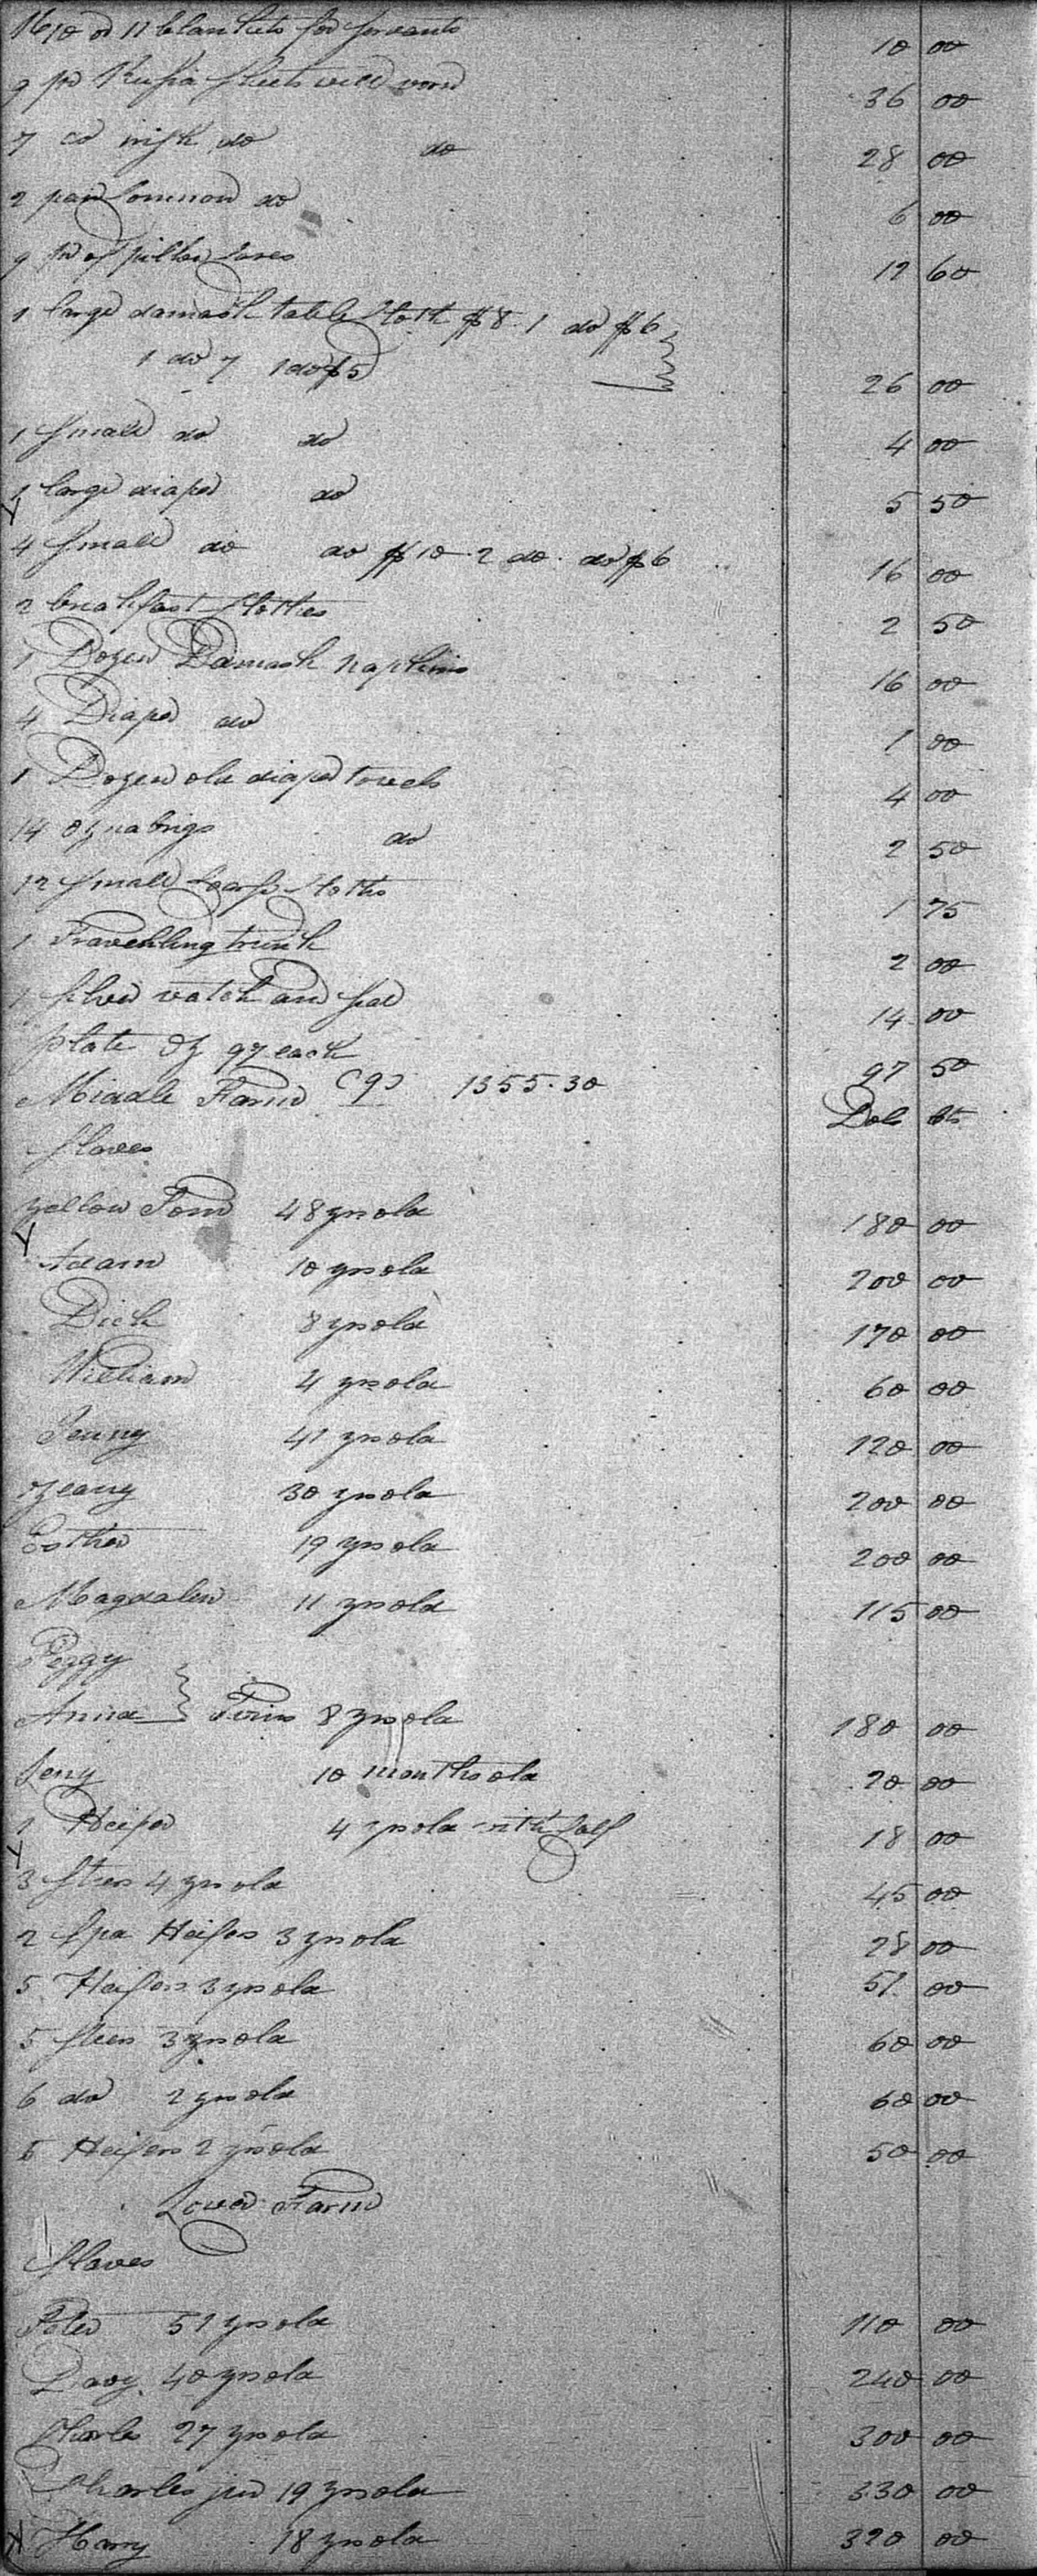 11 blankets for servants 10 00
9 pr Russia sheets well worn 36 00
7 do irish do do 28 00
2 pair Common do 6 00
9 pr of pillow Cases 12 60
1 large damask table Cloth $8. 1 do $6
1 do 7 1 do $5 26 00
1 small do do 4 00
1 large diaper do 5 50
4 small do do $10. 2 do. do $6 16 00
2 breakfast Clothes 2 50
1 Dozen Damask napkins 16 00
4 Diaper do 1 00
1 Dozen old diaper towels 4 00
14 oznabrigs do 2 50
12 small Cloths 1 75
1 Travehling trunk 2 00
1 silver watch and seal 14 00
plate Oz 97 each 97 50
Middle Farm (9) 1355.30 Dols Cts
Slaves
yellow Tom 48 yrs old 180 00
Adam 10 yrs old 200 00
Dick 8 yrs old 170 00
William 4 yrs old 60 00
Jenny 41 yrs old 120 00
30 yrs old 200 00
Esther 19 yrs old 200 00
Magdalen 11 yrs old 115 00
Peggy
Anna } Twins 8 yrs old 180 00
10 months old 20 00
1 Heifer 4 yrs old with Calf 18 00
3 Steers 4 yrs old 45 00
2 Spa Heifers 3 yrs old 28 00
5 Heifers 3 yrs old 51 00
5 Steers 3 yrs old 60 00
6 do 2 yrs old 60 00
5 Heifers 2 yrs old 50 00
Lower Farm
Slaves
Peter 51 yrs old 110 00
Davy 40 yrs old 240 00
Charles 27 yrs old 300 00
Charles jun 19 yrs old 330 00
Harry 18 yrs old 320 00